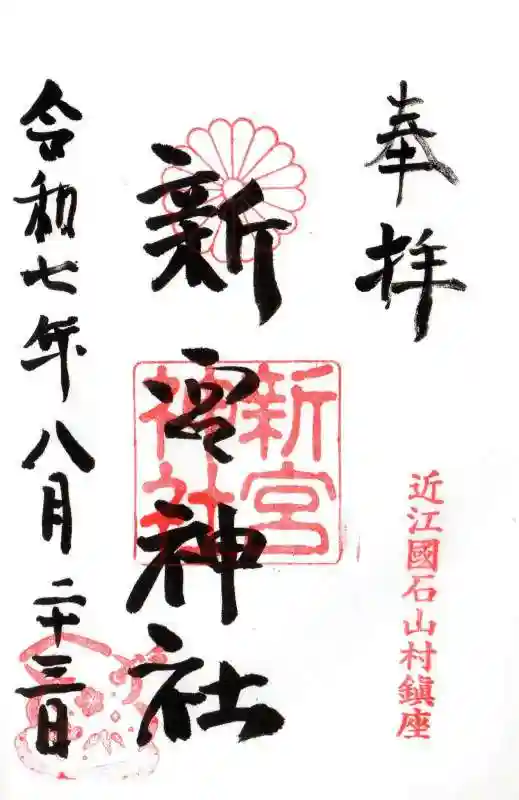 奉拝
近江國石山村鎮座
新宮神社
新宮
神社
令和七年八月二十三日